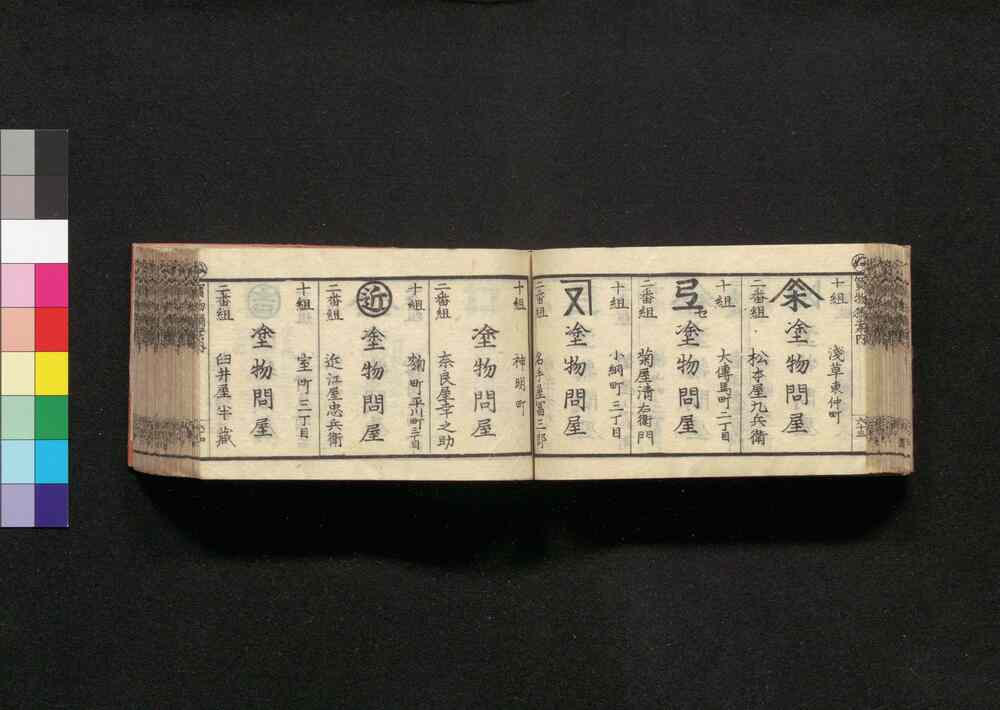 十組
二番組
淺草東仲町
塗物問屋
松本屋九兵衞
十組
二番組
セ
大傳馬町二丁目
塗物問屋
菊屋清右衛門
十組
二番組
又
小網町三丁目
塗物問屋
名手屋冨三郎
十組
二番組
神明町
塗物問屋
奈良屋幸之助
十組
二番組
近
麹町平川町三丁目
塗物問屋
近江屋忠兵衛
十組
二番組
室町三丁目
塗物問屋
臼井屋半藏